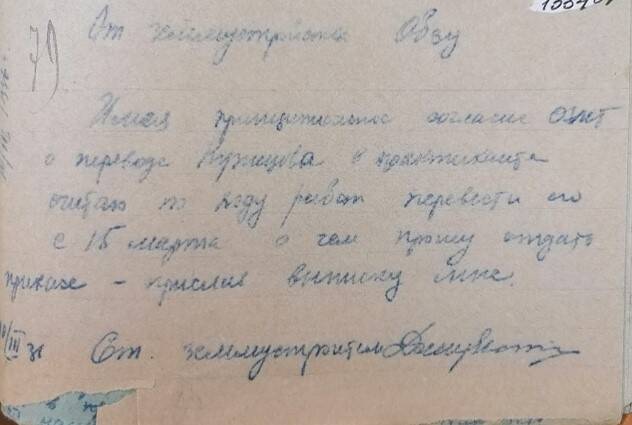 79
От землеустройства Обзу
Имея принципиальное согласие
о переводе Кузнецова в практиканта
считаю по ходу работ перевести его
с 15 марта о чем прошу отдать
приказ – прислав выписку мне.
/III 31 Ст. землеустроитель